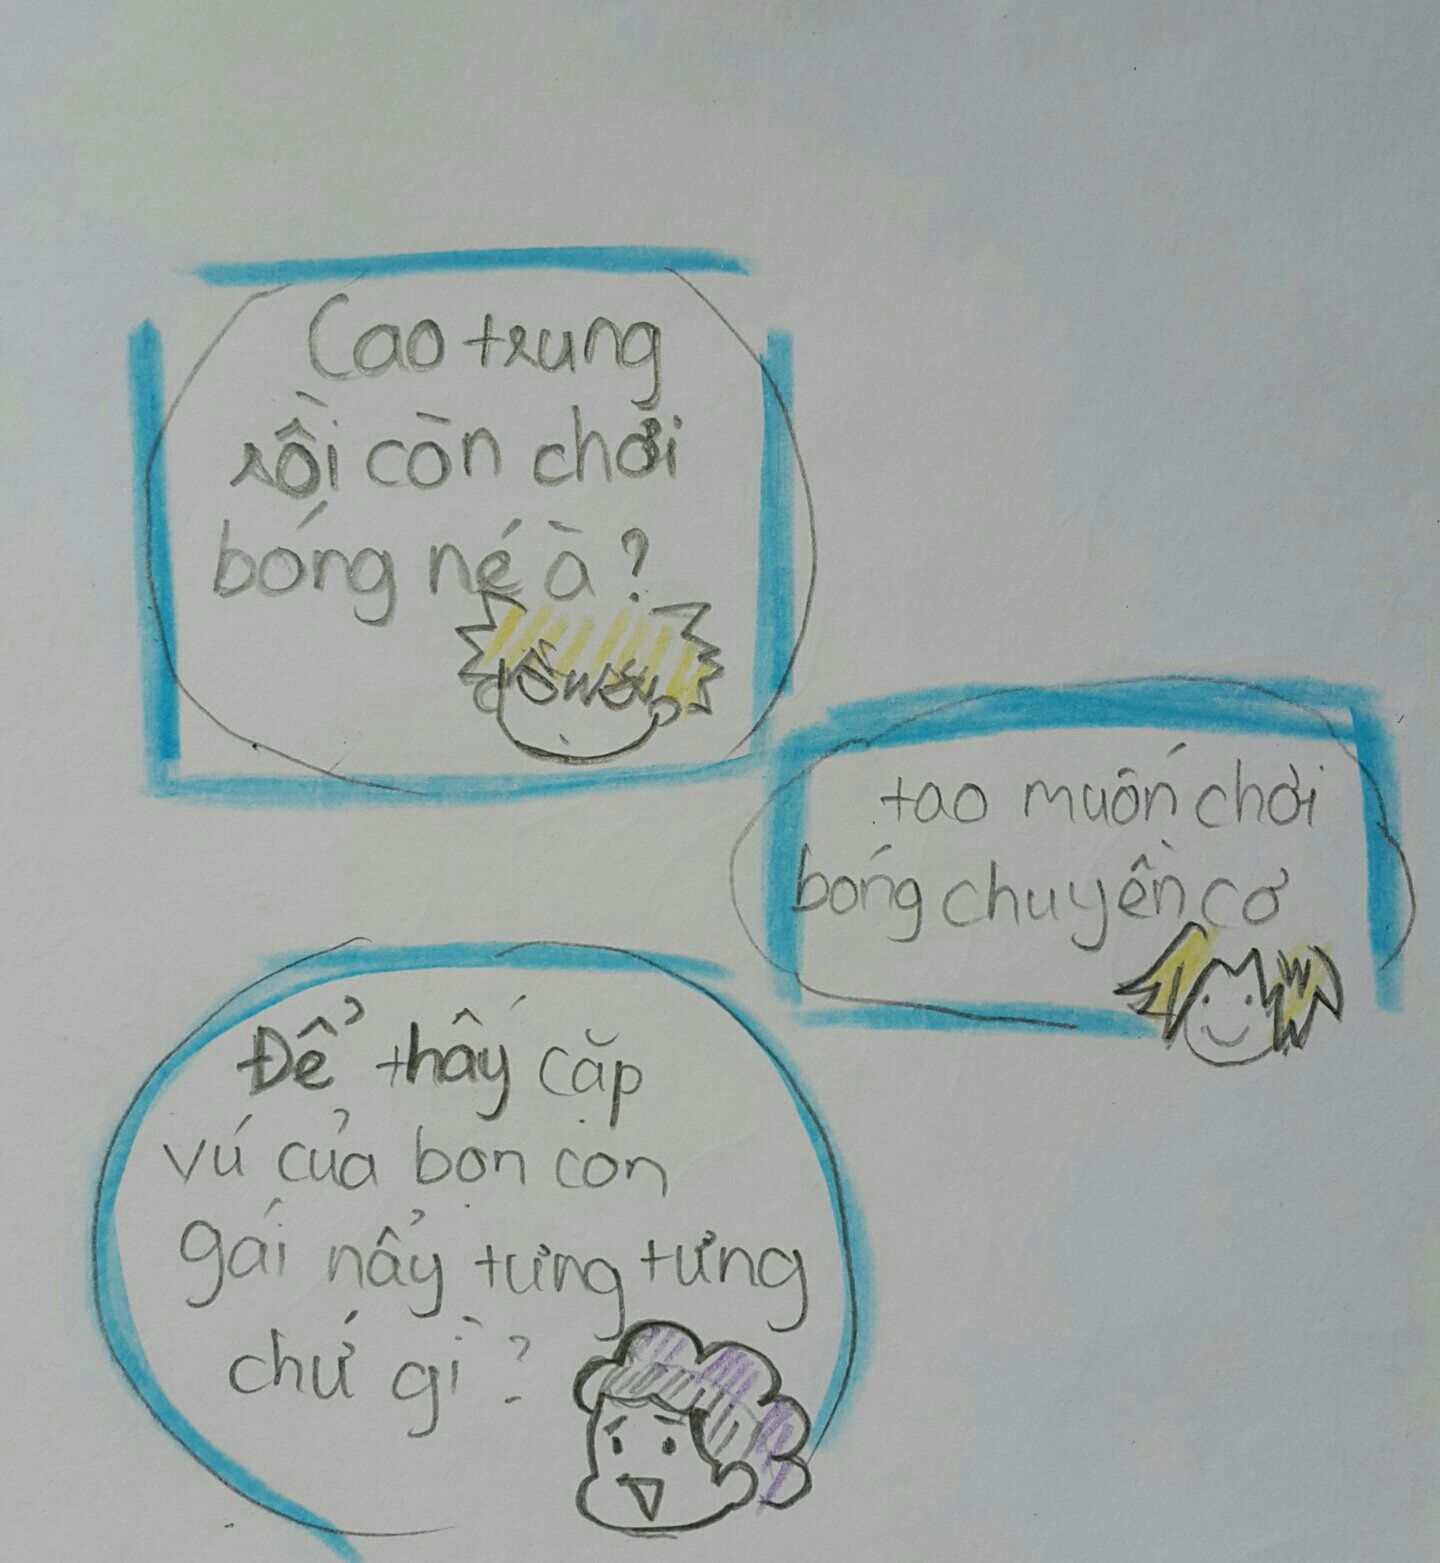 Cao trung
rồi còn chơi
bóng né à?
tao muốn chơi
bóng chuyền cơ
Để thấy cặp
vú của bọn con
gái nẩy tưng tưng
chứ gì?